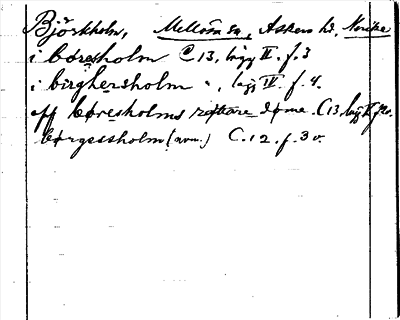 Björkholm, Mellösa sn, Askers hd, Nerike
i børesholm C 13, lägg II. f. 3
i birghersholm ", lägg IV. f. 4.
aff børesholms rættare døme. C 13, lägg
børgessholm (avn.) C. 12. f. 3 v.